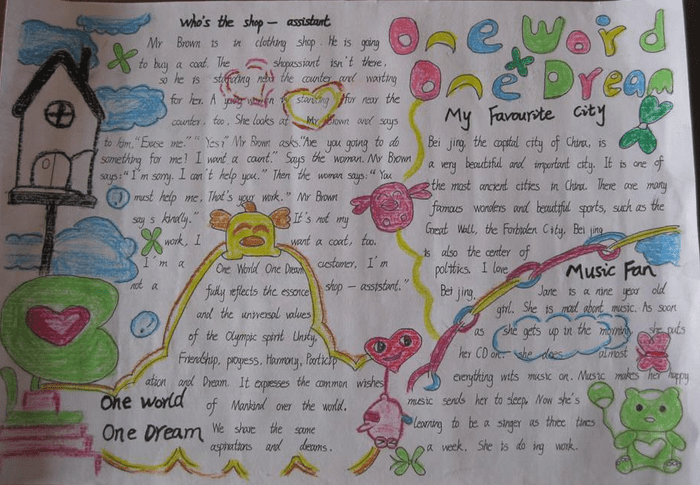 Who's the shop — assistant
Mr Brown is in clothing shop. He is going
to buy a coat. The shopassiant isn't there,
so he is standing near the counter and waiting
for her. A young woman is standing for near the
counter, too. She looks at Mr Brown and says
to him, "Excuse me." "Yes?" Mr Brown asks. "Are you going to do
something for me? I want a count." Says the woman. Mr Brown
says: "I'm sorry. I can't help you." Then the woman says: "You
must help me. That's your work." Mr Brown
say s kindly." It's not my
work, I want a coat, too.
I'm a customer, I'm
not a shop — assistant."
One World One Dream
fully reflects the essence
and the universal values
of the Olympic spirit Unity,
Friendship, progress, Harmony, Particip
ation and Dream. It expresses the common wishes
One World of Mankind over the world.
One Dream We share the same
aspirations and dreams.
One Word
One Dream
My Favourite City
Bei jing, the capital city of China, is
a very beautiful and important city. It is one of
the most ancient cities in China. There are many
famous wonders and beautiful sports, such as the
Great Wall, the Forbidden City, Bei jing
is also the center of
politics. I love
Bei jing.
Music Fan
Jane is a nine year old
girl. She is mad about music. As soon
as she gets up in the morning, she puts
her CD on. she does almost
everything wits music on. Music makes her happy
music sends her to sleep. Now she's
learning to be a singer as three times
a week. She is do ing work.